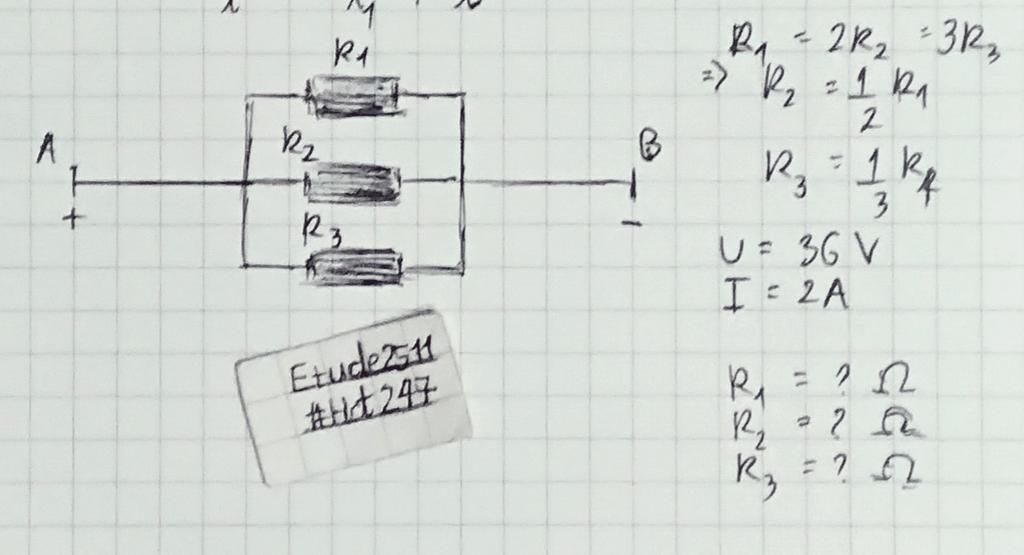 R1
R2
R3
A
+
B
-
Etude2511
#Hot247
R1 = 2R2 = 3R3
=> R2 = 1/2 R1
R3 = 1/3 R1
U = 36 V
I = 2A
R1 = ? Ω
R2 = ? Ω
R3 = ? Ω